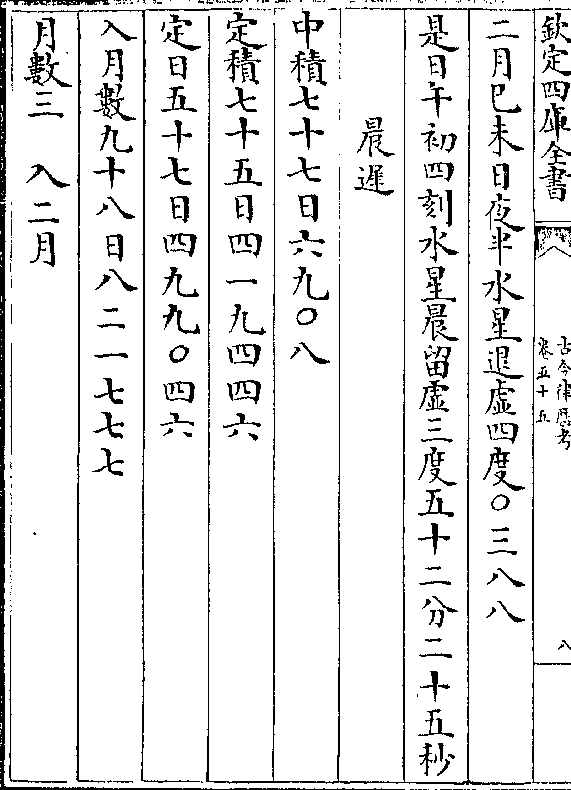 欽定四庫全書
古今律厯考
卷五十五
八
二月巳未日夜半水星退虛四度〇三八八
是日午初四刻水星晨留虛三度五十二分二十五秒
晨遲
中積七十七日六九〇八
定積七十五日四一九四四六
定日五十七日四九九〇四六
入月數九十八日八二一七七七
月數三　入二月